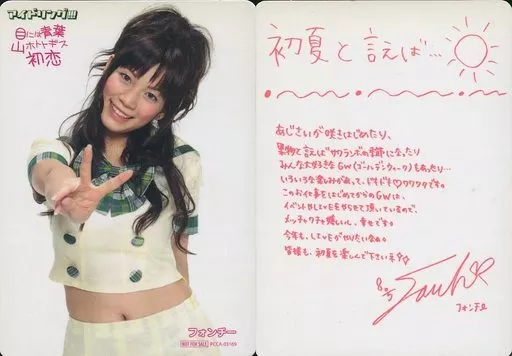 アイドリング!!!
目には青葉
山ホトトギス
初恋
フォンチー
NOT FOR SALE
PCCA-03169
初夏と言えば…
あじさいが咲きはじめたり、
果物と言えばサクランボの季節になったり
みんな大好きなGW(ゴールデンウィーク)もあったり…
いろいろな楽しみがあって、ドキドキ♡ワクワクです。
このお仕事をはじめてからのGWは、
イベントやLIVEをやらせて頂いているので、
メッチャクチャ嬉しいし、幸せです。
今年も、LIVEがやりたいなぁ。
皆様も、初夏を楽しんで下さいネ!
フォンチー